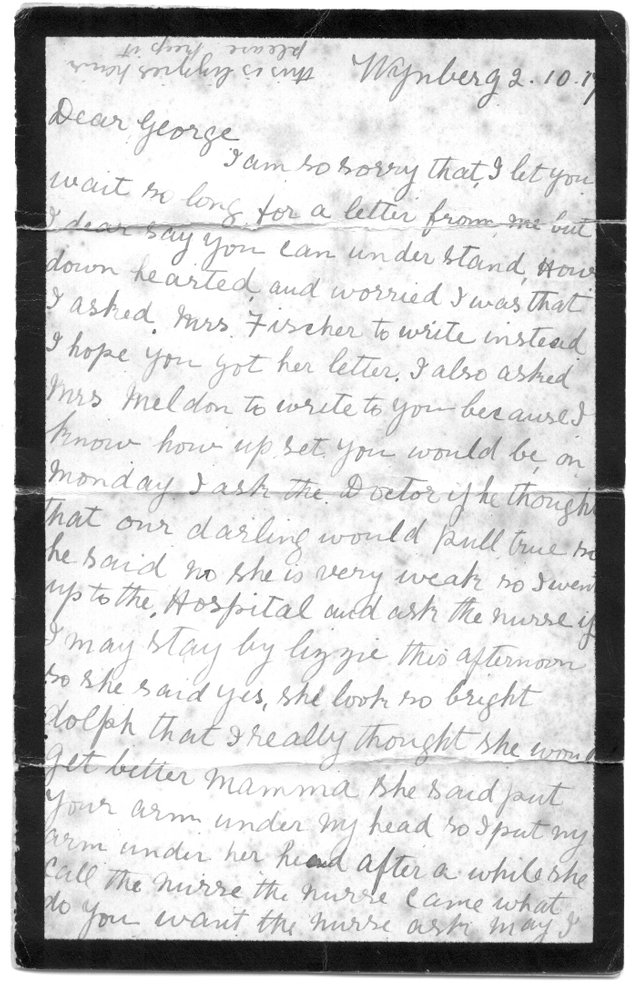 this is lizzies hair
please keep it
Wynberg 2.10.17
Dear George
I am so sorry that, I let you
wait so long for a letter from me but
I dear say you can under stand, How
down hearted, and worried I was that
I asked, Mrs. Fischer to write instead
I hope you got her letter. I also asked
Mrs Meldon to write to you because I
know how up set you would be, on
Monday I ask the Doctor if he thought
that our darling would pull true so
he said no she is very weak so I went
up to the, Hospital and ask the nurse if
I may stay by lizzie this afternoon
so she said yes, she look so bright
dolph that I really thought she would
get better mamma she said put
your arm under my head so I put my
arm under her head after a while she
call the nurse the nurse came what
do you want the nurse ask may I